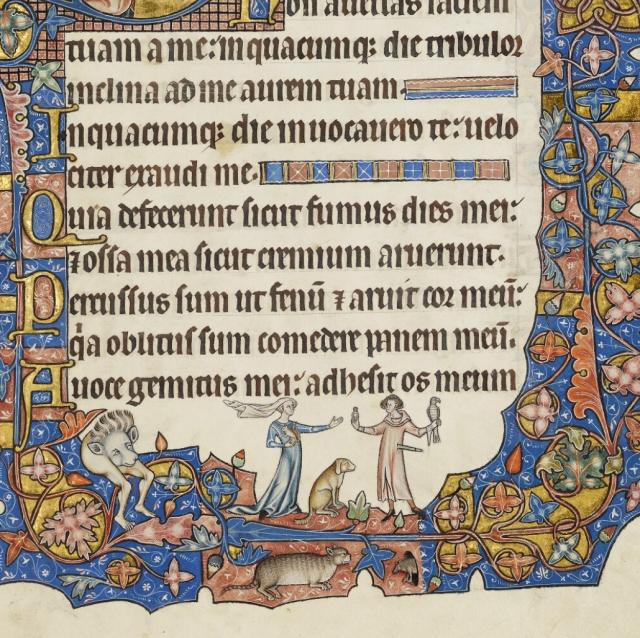 Non avertas faciem
tuam a me: in quacumq; die tribulor
inclina ad me aurem tuam.
In quacumq; die invocavero te: velo
citer exaudi me.
Quia defecerunt sicut fumus dies mei:
⁊ ossa mea sicut cremium aruerunt.
Percussus sum ut fenū ⁊ aruit cor meū:
qͥa oblitus sum comedere panem meū.
A voce gemitus mei: adhesit os meum